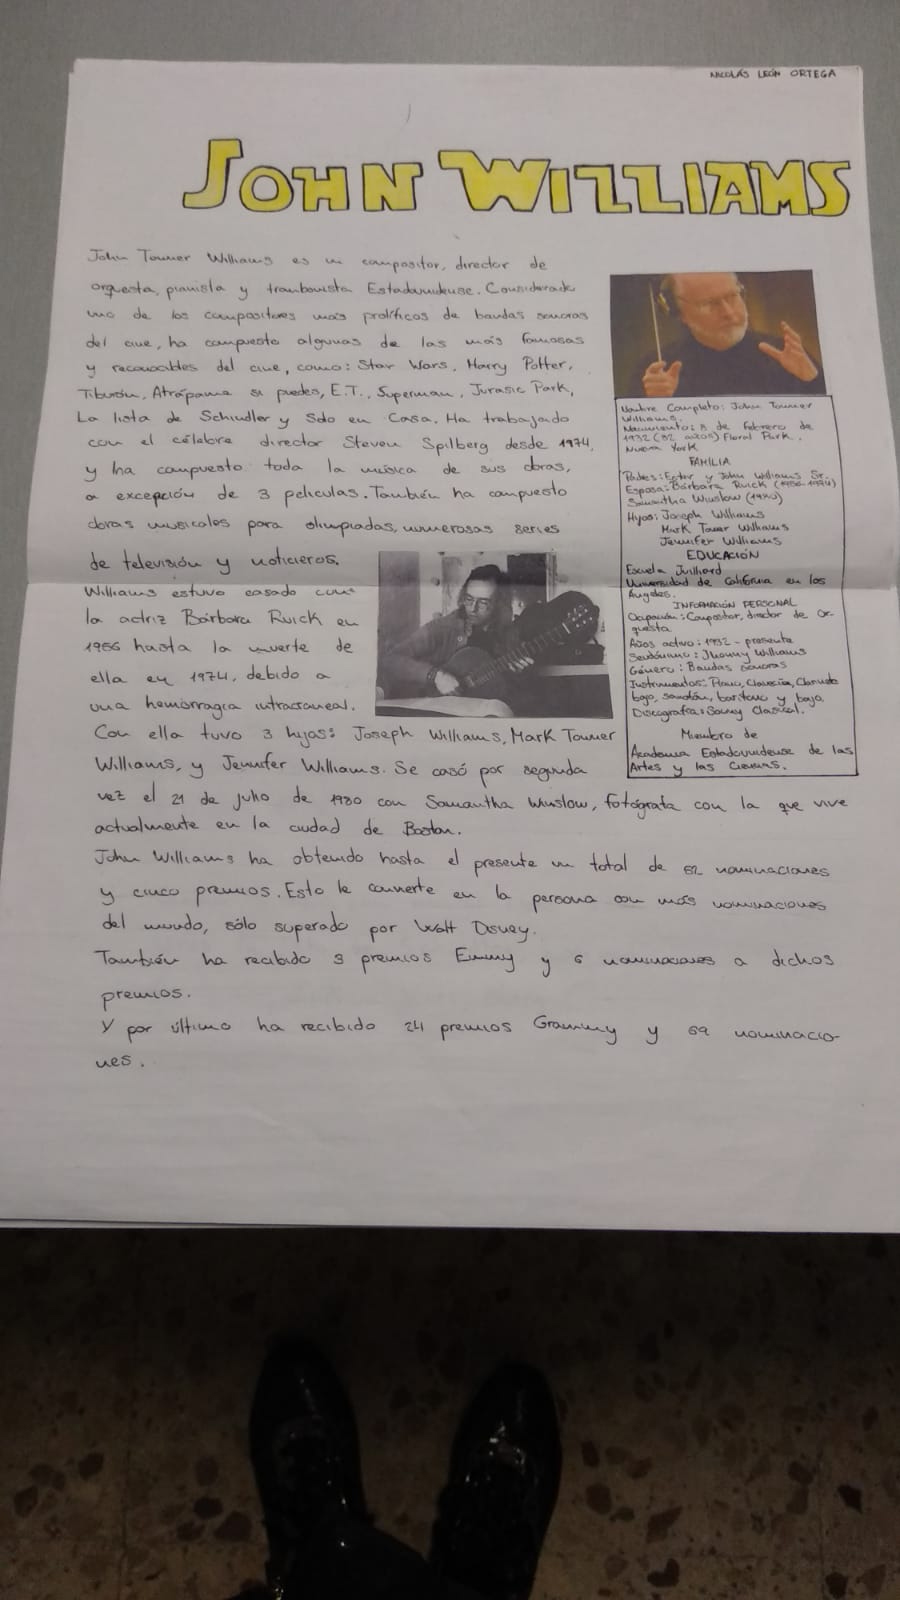 NICOLÁS LEÓN ORTEGA
JOHN WILLIAMS
John Towner Williams es un compositor, director de
orquesta, pianista y trombonista Estadounidense. Considerado
uno de los compositores más prolíficos de bandas sonoras
del cine, ha compuesto algunas de las más famosas
y reconocibles del cine, como: Star Wars, Harry Potter,
Tiburón, Atrápame si puedes, E.T., Superman, Jurasic Park,
La lista de Schindler y Solo en Casa. Ha trabajado
con el célebre director Steven Spilberg desde 1974,
y ha compuesto toda la música de sus obras,
a excepción de 3 películas. También ha compuesto
obras musicales para olimpiadas, numerosas series
de televisión y noticieros.
Williams estuvo casado con
la actriz Bárbara Ruick en
1956 hasta la muerte de
ella en 1974, debido a
una hemorragia intracraneal.
Con ella tuvo 3 hijos: Joseph Williams, Mark Towner
Williams, y Jennifer Williams. Se casó por segunda
vez el 21 de julio de 1980 con Samantha Winslow, fotógrafa con la que vive
actualmente en la ciudad de Boston.
John Williams ha obtenido hasta el presente un total de 52 nominaciones
y cinco premios. Esto le convierte en la persona con más nominaciones
del mundo, sólo superado por Walt Disney.
También ha recibido 3 premios Emmy y 6 nominaciones a dichos
premios.
Y por último ha recibido 24 premios Grammy y 69 nominacio-
nes.
Nombre Completo: John Towner
Williams.
Nacimiento: 8 de febrero de
1932 (92 años) Floral Park,
Nueva York
FAMILIA
Padres: Ester y John Williams Sr.
Esposa: Bárbara Ruick (1956-1974)
Samantha Winslow (1980)
Hijos: Joseph Williams
Mark Tower Williams
Jennifer Williams
EDUCACIÓN
Escuela Juilliard
Universidad de California en los
Ángeles.
INFORMACIÓN PERSONAL
Ocupación: Compositor, director de or-
questa
Años activo: 1952 - presente
Seudónimo: Jhonny Williams
Género: Bandas sonoras
Instrumentos: Piano, Clavecín, Clarinete
bajo, saxofón, barítono y bajo.
Discografía: Sonny Clasical.
Miembro de
Academia Estadounidense de las
Artes y las Ciencias.